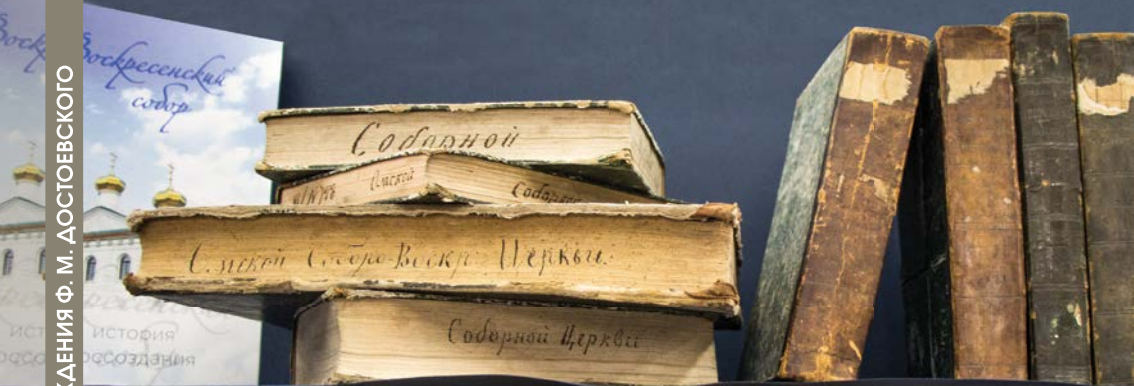 ЖДЕНИЯ Ф. М. ДОСТОЕВСКОГО
Воскресенский
собор
история
воссоздания
Соборной
Омской Соборной
Омской Соборо-Воскр. Церкви.
Соборной Церкви